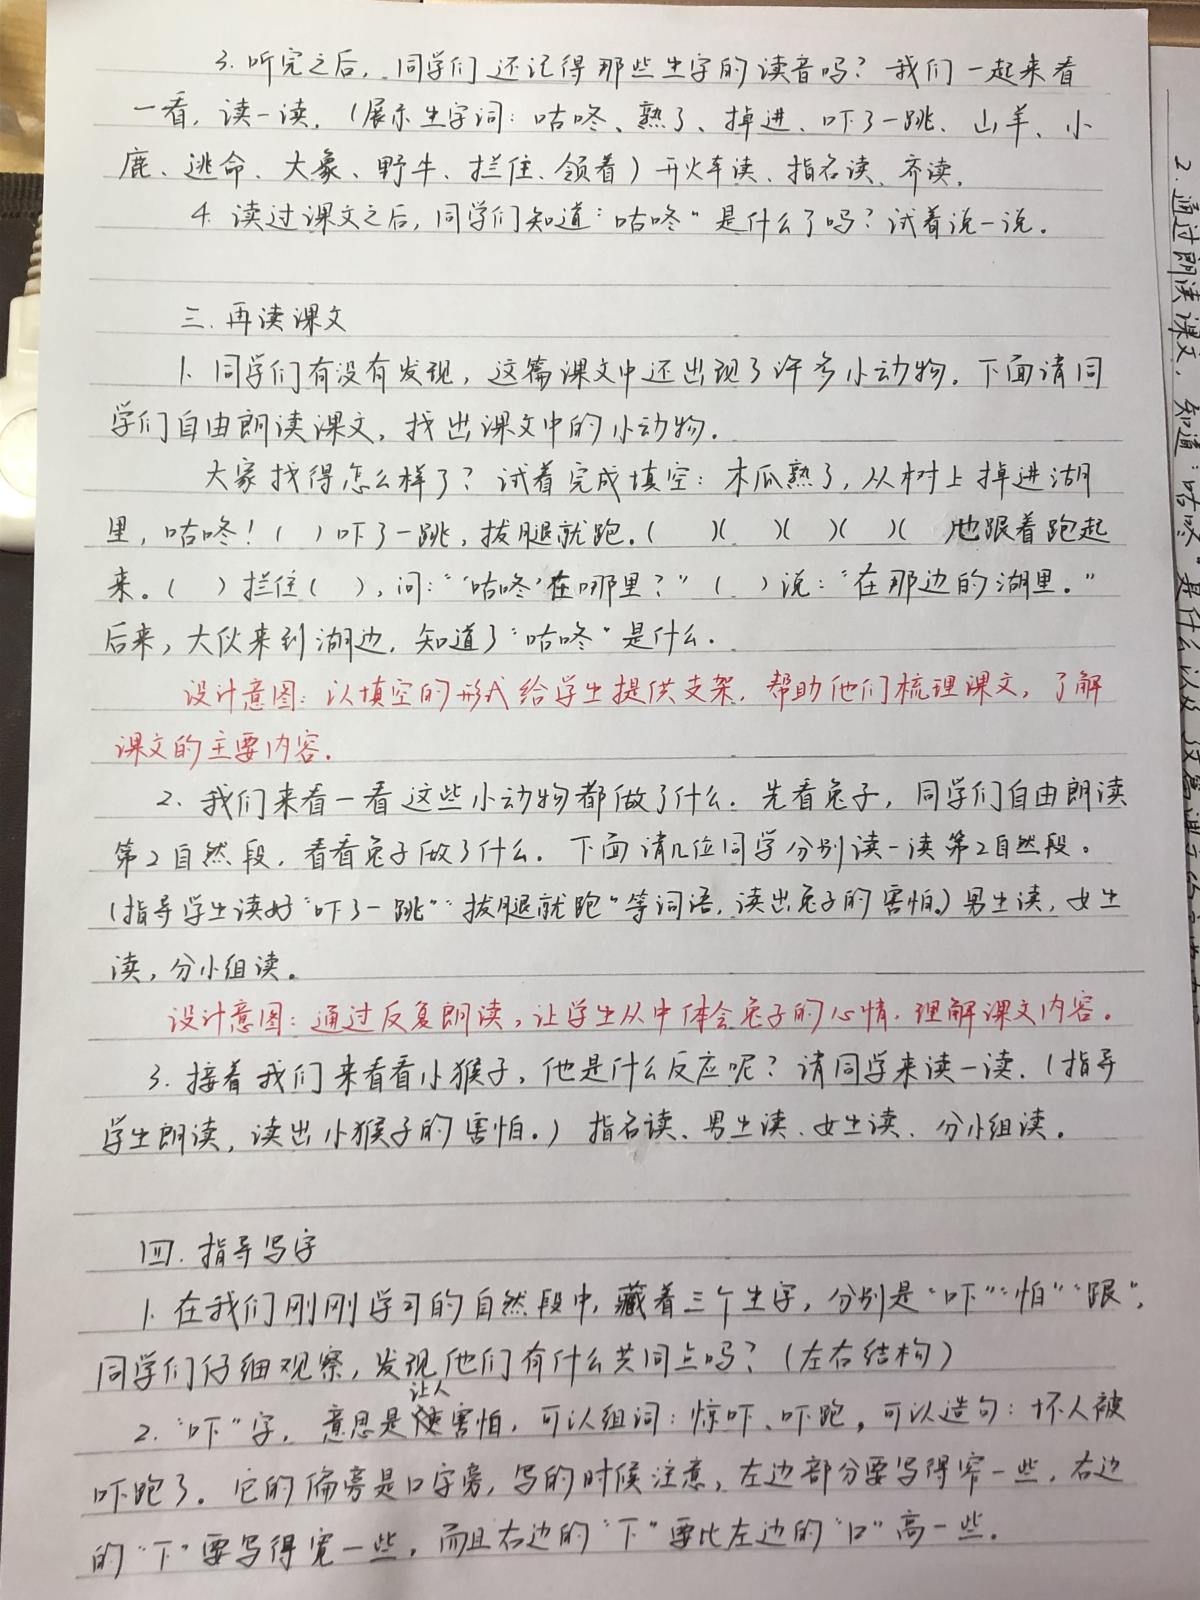 3. 听完之后，同学们还记得那些生字的读音吗？我们一起来看
一看，读一读。（展示生字词：咕咚、熟了、掉进、吓了一跳、山羊、小
鹿、逃命、大象、野牛、拦住、领着）开火车读、指名读、齐读。
4. 读过课文之后，同学们知道“咕咚”是什么了吗？试着说一说。
三. 再读课文
1. 同学们有没有发现，这篇课文中还出现了许多小动物。下面请同
学们自由朗读课文，找出课文中的小动物。
大家找得怎么样了？试着完成填空：木瓜熟了，从树上掉进湖
里，咕咚！（ ）吓了一跳，拔腿就跑。（ ）（ ）（ ）（ ）（ 也跟着跑起
来。（ ）拦住（ ），问：“‘咕咚’在哪里？”（ ）说：“在那边的湖里。”
后来，大伙来到湖边，知道了“咕咚”是什么。
设计意图：以填空的形式给学生提供支架，帮助他们梳理课文，了解
课文的主要内容。
2. 我们来看一看这些小动物都做了什么。先看兔子，同学们自由朗读
第2自然段，看看兔子做了什么。下面请几位同学分别读一读第2自然段。
（指导学生读好“吓了一跳”“拔腿就跑”等词语，读出兔子的害怕。）男生读，女生
读，分小组读。
设计意图：通过反复朗读，让学生从中体会兔子的心情，理解课文内容。
3. 接着我们来看看小猴子，他是什么反应呢？请同学来读一读。（指导
学生朗读，读出小猴子的害怕。）指名读、男生读、女生读、分小组读。
四. 指导写字
1. 在我们刚刚学习的自然段中，藏着三个生字，分别是“吓”“怕”“跟”，
同学们仔细观察，发现他们有什么共同点吗？（左右结构）
2. “吓”字，意思是让人害怕，可以组词：惊吓、吓跑，可以造句：坏人被
吓跑了。它的偏旁是口字旁，写的时候注意，左边部分要写得窄一些，右边
的“下”要写得宽一些，而且右边的“下”要比左边的“口”高一些。
2. 通过朗读课文，知道“咕咚”是什么以及